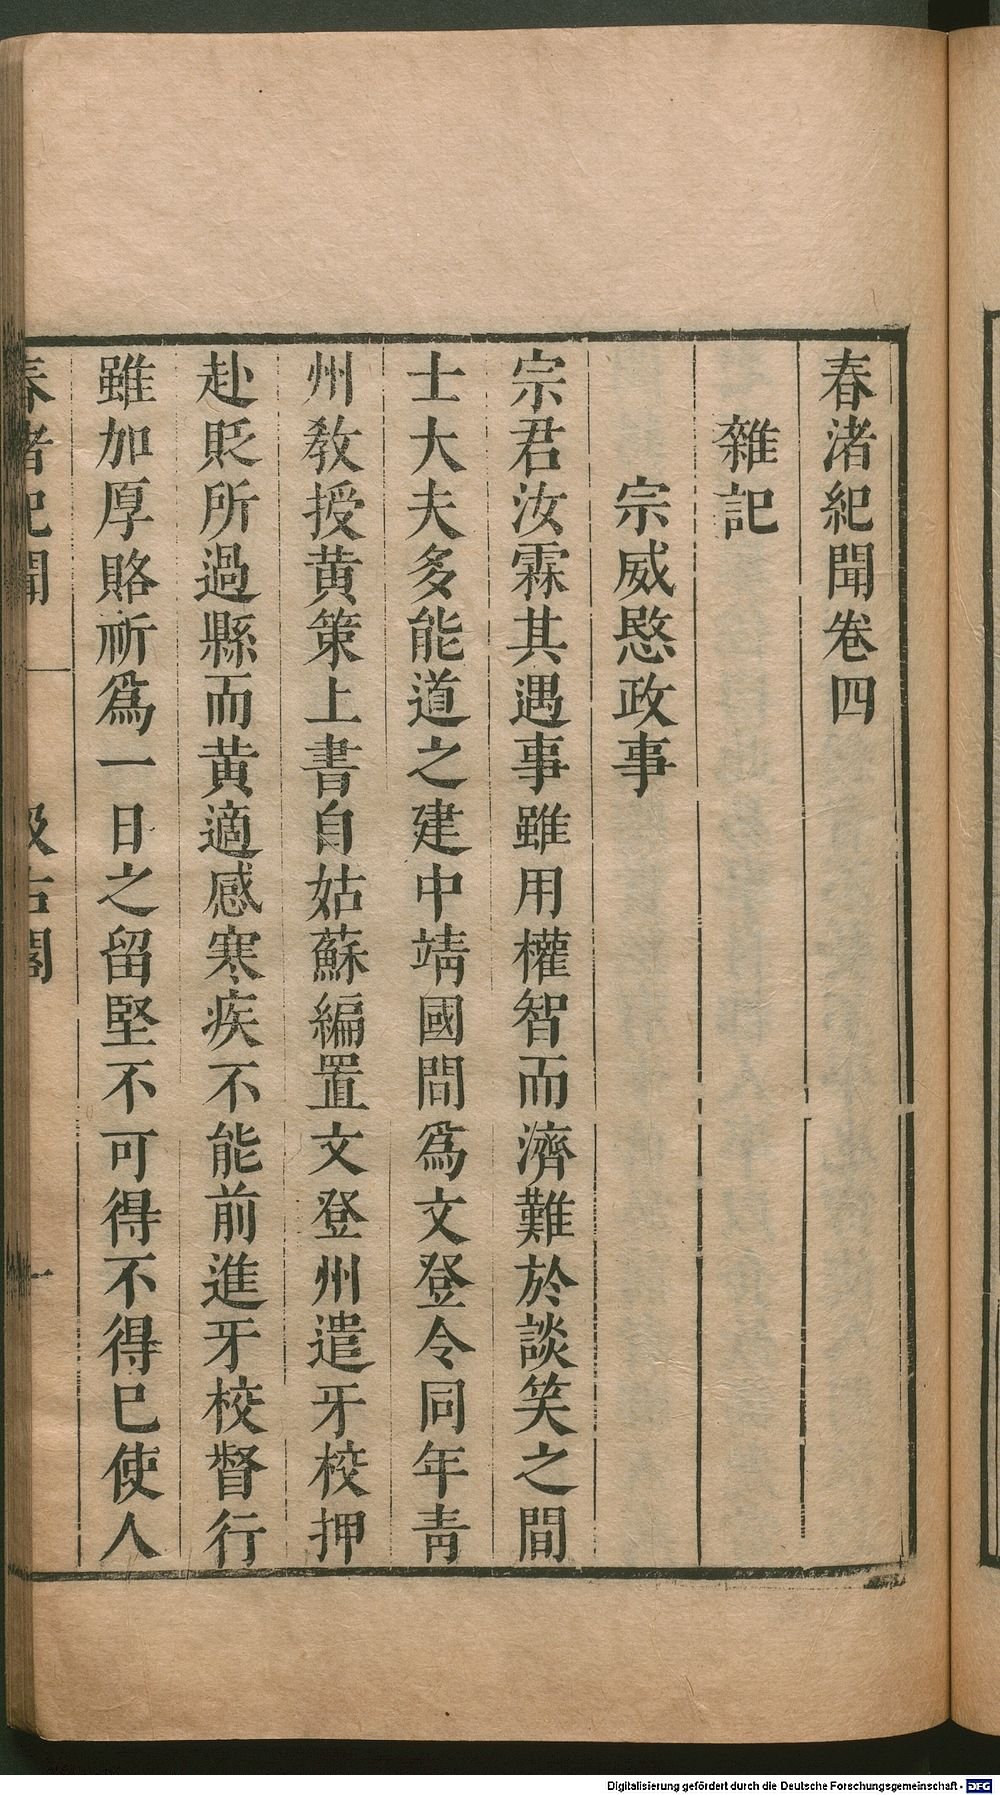 春渚紀聞卷四
雜記
宗威愍政事
宗君汝霖其遇事雖用權智而濟難於談笑之間
士大夫多能道之建中靖國間爲文登令同年靑
州敎授黄策上書自姑蘇編置文登州遣牙校押
赴貶所過縣而黄適感寒疾不能前進牙校督行
雖加厚賂祈爲一日之留堅不可得不得巳使人
春渚紀聞 汲古閣 一
Digitalisierung gefördert durch die Deutsche Forschungsgemeinschaft - DFG